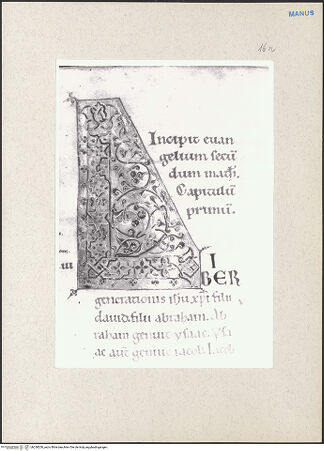 MANUS
16 r
Incipit evan
gelium secū
dum math.
Capitulū
primū.
I
BER
generationis ihu xpi filii
david. filii abraham. Ab
raham genuit ysaac. Ysa
ac aut̄ genuit iacob. Iacob